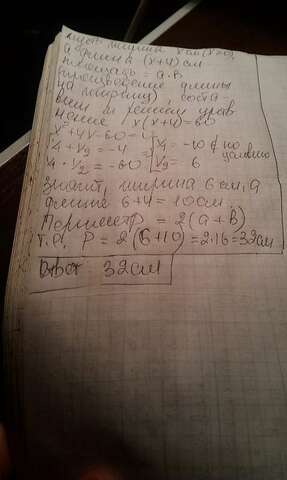 пусть ширина x см (x>0)
а длина (x+4) см
площадь = а·в
(произведение длины
на ширину), соста
вим и решим урав
нение x(x+4)=60
x²+4x-60=0
x₁+x₂=-4 x₁=-10 ∉ по условию
x₁·x₂=-60 x₂=6
значит, ширина 6 см, а
длина 6+4=10см.
Периметр = 2(а+в)
т.о, P = 2(6+10)=2·16=32см
Ответ: 32см